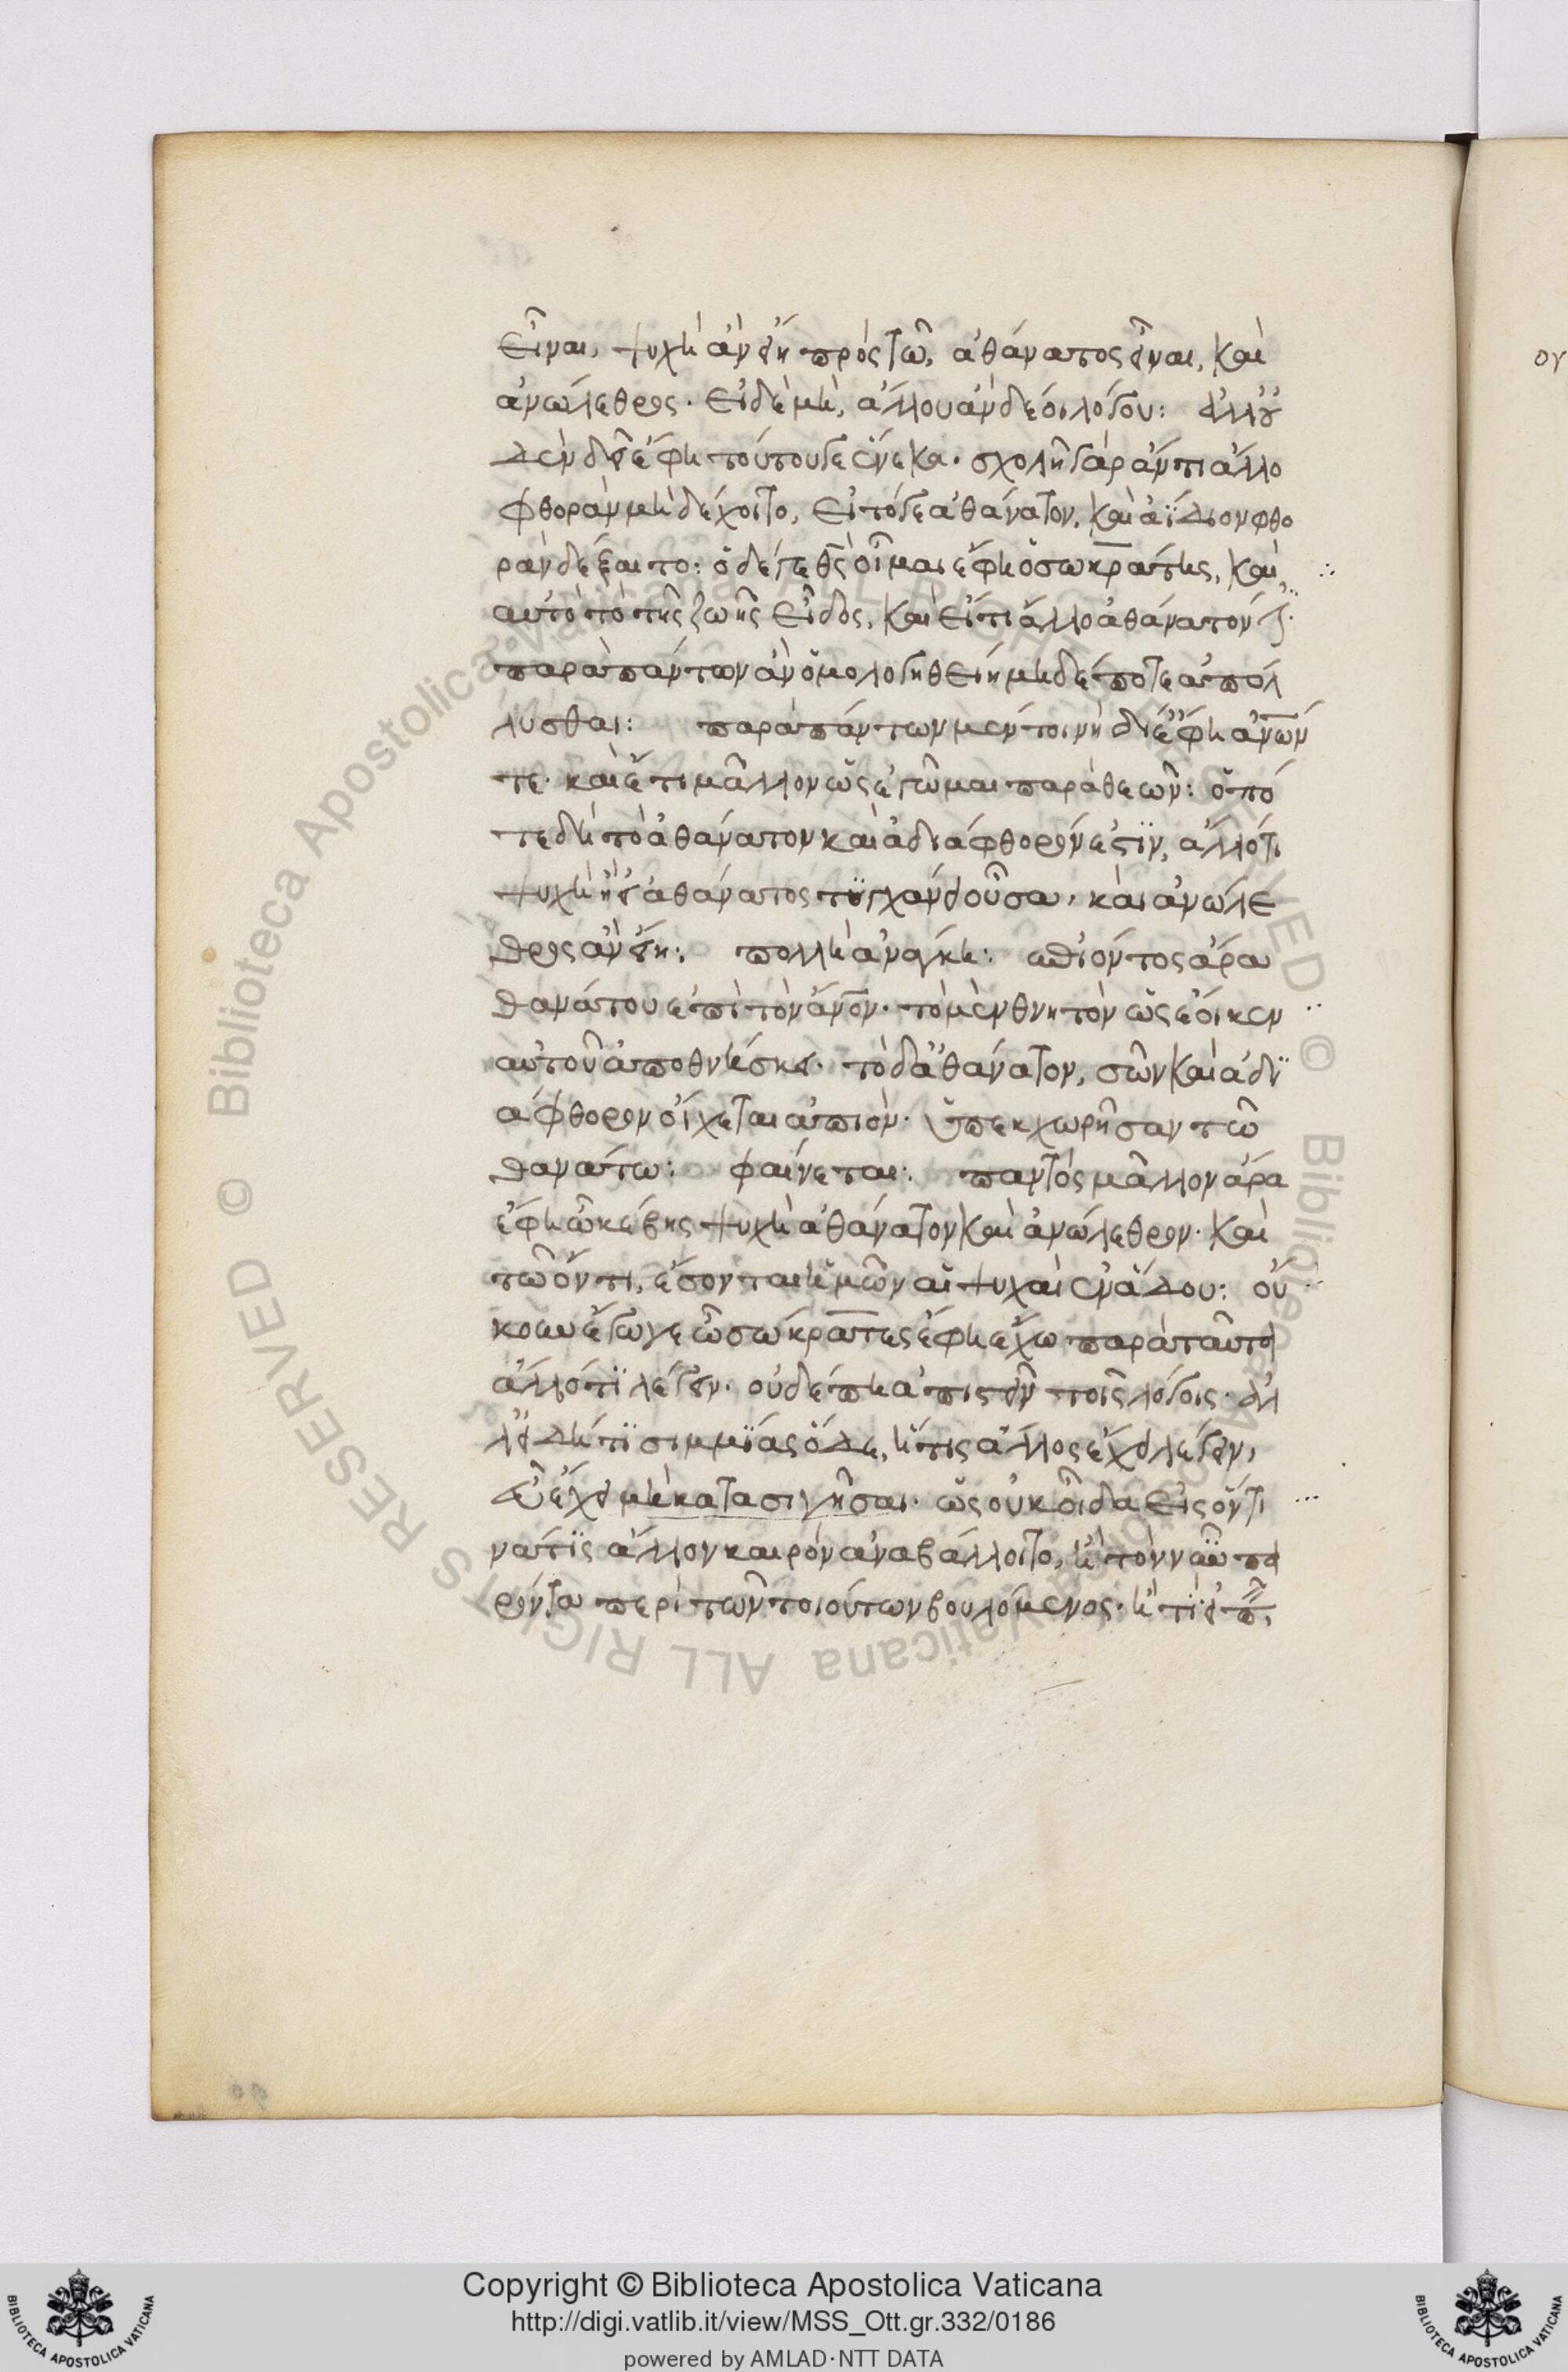 εἶναι, ψυχὴ ἂν εἴη πρὸς τῶ, ἀθάνατος εἶναι, καὶ
ἀνώλεθρος. εἰ δὲ μὴ, ἄλλου ἂν δέοι λόγου: ἀλλ' οὐ
δὲν δεῖ ἔφη τούτου γε ἕνεκα. σχολῆ γὰρ ἄν τι ἄλλο
φθορὰν μὴ δέχοιτο, εἰ τό γε ἀθάνατον, καὶ ἀΐδιον φθο
ρὰν δέξαιτο: ὁ δέ γε θς οἶμαι ἔφη ὁ σωκράτης, καὶ
αὐτὸ τὸ τῆς ζωῆς εἶδος, καὶ εἴ τι ἄλλο ἀθάνατόν ἐστι
παρὰ πάντων ἂν ὁμολογηθείη μηδέποτε ἀπόλ
λυσθαι: παρὰ πάντων μέν τοι νὴ δί' ἔφη ἀνων
τε. καὶ ἔτι μᾶλλον ὡς ἐγῶμαι παρὰ θεῶν: ὁπό
τε δὴ τὸ ἀθάνατον καὶ ἀδιάφθορόν ἐστιν, ἄλλό τι
ψυχὴ ἢ εἰ ἀθάνατος τυγχάνει οὖσα, καὶ ἀνώλε
θρος ἂν εἴη: πολλὴ ἀνάγκη: ἐπιόντος ἄρα
θανάτου ἐπὶ τὸν ἄνον. τὸ μὲν θνητὸν ὡς ἔοικεν
αὐτοῦ ἀποθνήσκει. τὸ δ' ἀθάνατον, σῶν καὶ ἀδι
άφθορον οἴχεται ἀπιὸν. ὑπεκχωρῆσαν τῶ
θανάτω: φαίνεται: παντὸς μᾶλλον ἄρα
ἔφη ὦ κέβης ψυχὴ ἀθάνατον καὶ ἀνώλεθρον. καὶ
τῶ ὄντι, ἔσονται ἡμῶν αἱ ψυχαὶ ἐν ἅδου: οὔ
κουν ἔγωγε ὦ σώκρατες ἔφη ἔχω παρὰ ταῦτα
ἄλλό τι λέγειν. οὐδέ πη ἀπιστεῖν τοῖς λόγοις. ἀλ
λ' εἰ δή τι σιμμίας ὅδε, ἤ τις ἄλλος ἔχει λέγειν,
εὖ ἔχει μὴ κατασιγῆσαι. ὡς οὐκ οἶδα εἰς ὅντι
νά τις ἄλλον καιρὸν ἀναβάλλοιτο, ἢ τὸν νῦν πα
ρόντα περὶ τῶν τοιούτων βουλόμενος. ἤ τι εἰπεῖν,
Copyright © Biblioteca Apostolica Vaticana
http://digi.vatlib.it/view/MSS_Ott.gr.332/0186
powered by AMLAD·NTT DATA